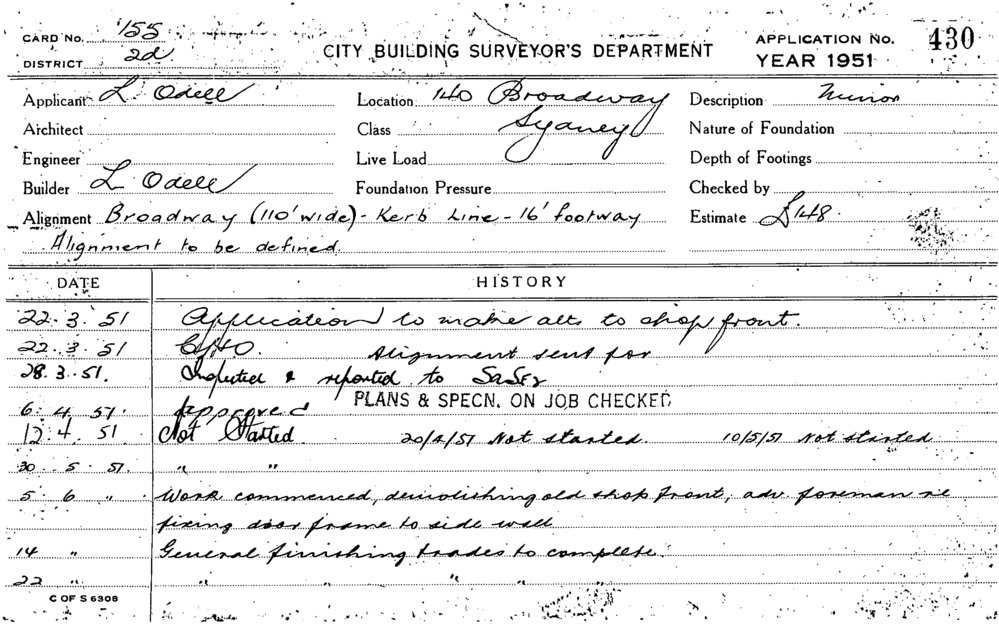 CARD No. 155
DISTRICT 2d
CITY BUILDING SURVEYOR'S DEPARTMENT
APPLICATION No. 430
YEAR 1951
Applicant L. Odell Location 140 Broadway Description Minor
Architect Class Sydney Nature of Foundation
Engineer Live Load Depth of Footings
Builder L Odell Foundation Pressure Checked by
Alignment Broadway (110' wide) - Kerb Line - 16' footway Estimate £148.
Alignment to be defined.
DATE HISTORY
22.3.51 Application to make alts to shop front.
22.3.51 Alignment sent for
28.3.51. Inspected & reported to
PLANS & SPECN. ON JOB CHECKED
6.4.51. Approved
12.4.51 Not Started. 20/4/51 Not started. 10/5/51 Not started
30.5.51. " "
5 6 " Work commenced, demolishing old shop front, adv. foreman re
fixing door frame to side wall
14 " General finishing trades to complete.
22 " " " " "
C OF S 6308